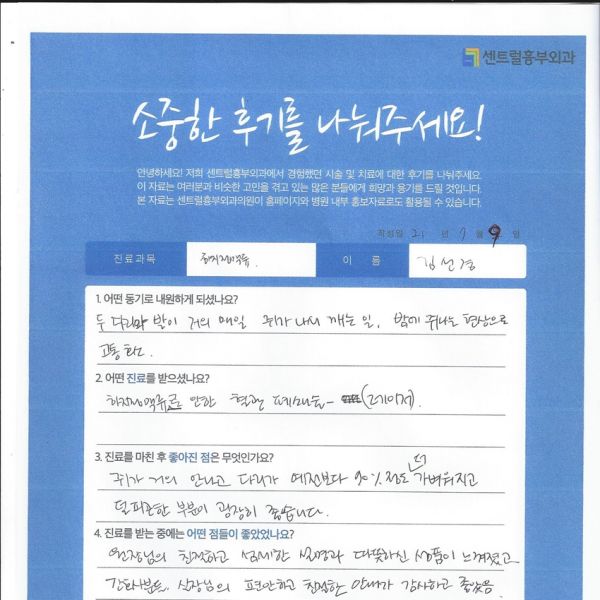 센트럴흉부외과
소중한 후기를 나눠주세요!
안녕하세요! 저희 센트럴흉부외과에서 경험했던 시술 및 치료에 대한 후기를 나눠주세요.
이 자료는 여러분과 비슷한 고민을 겪고 있는 많은 분들에게 희망과 용기를 드릴 것입니다.
본 자료는 센트럴흉부외과의원이 홈페이지와 병원 내부 홍보자료로도 활용될 수 있습니다.
작성일 21 년 7 월 9 일
진료과목 하지정맥류. 이 름 김선경
1. 어떤 동기로 내원하게 되셨나요?
두 다리와 발이 거의 매일 쥐가 나서 깨는 일, 밤에 쥐나는 현상으로
고통
2. 어떤 진료를 받으셨나요?
하지정맥류로 인한 혈관 폐쇄술- (레이저).
3. 진료를 마친 후 좋아진 점은 무엇인가요?
쥐가 거의 안나고 다리가 예전보다 90% 정도 가벼워지고
덜 피곤한 부분이 굉장히 좋습니다.
4. 진료를 받는 중에는 어떤 점들이 좋았었나요?
원장님의 친절하고 섬세한 설명과 따뜻하신 성품이 느껴졌고
간호사분들, 실장님의 편안하고 친절한 안내가 감사하고 좋았음